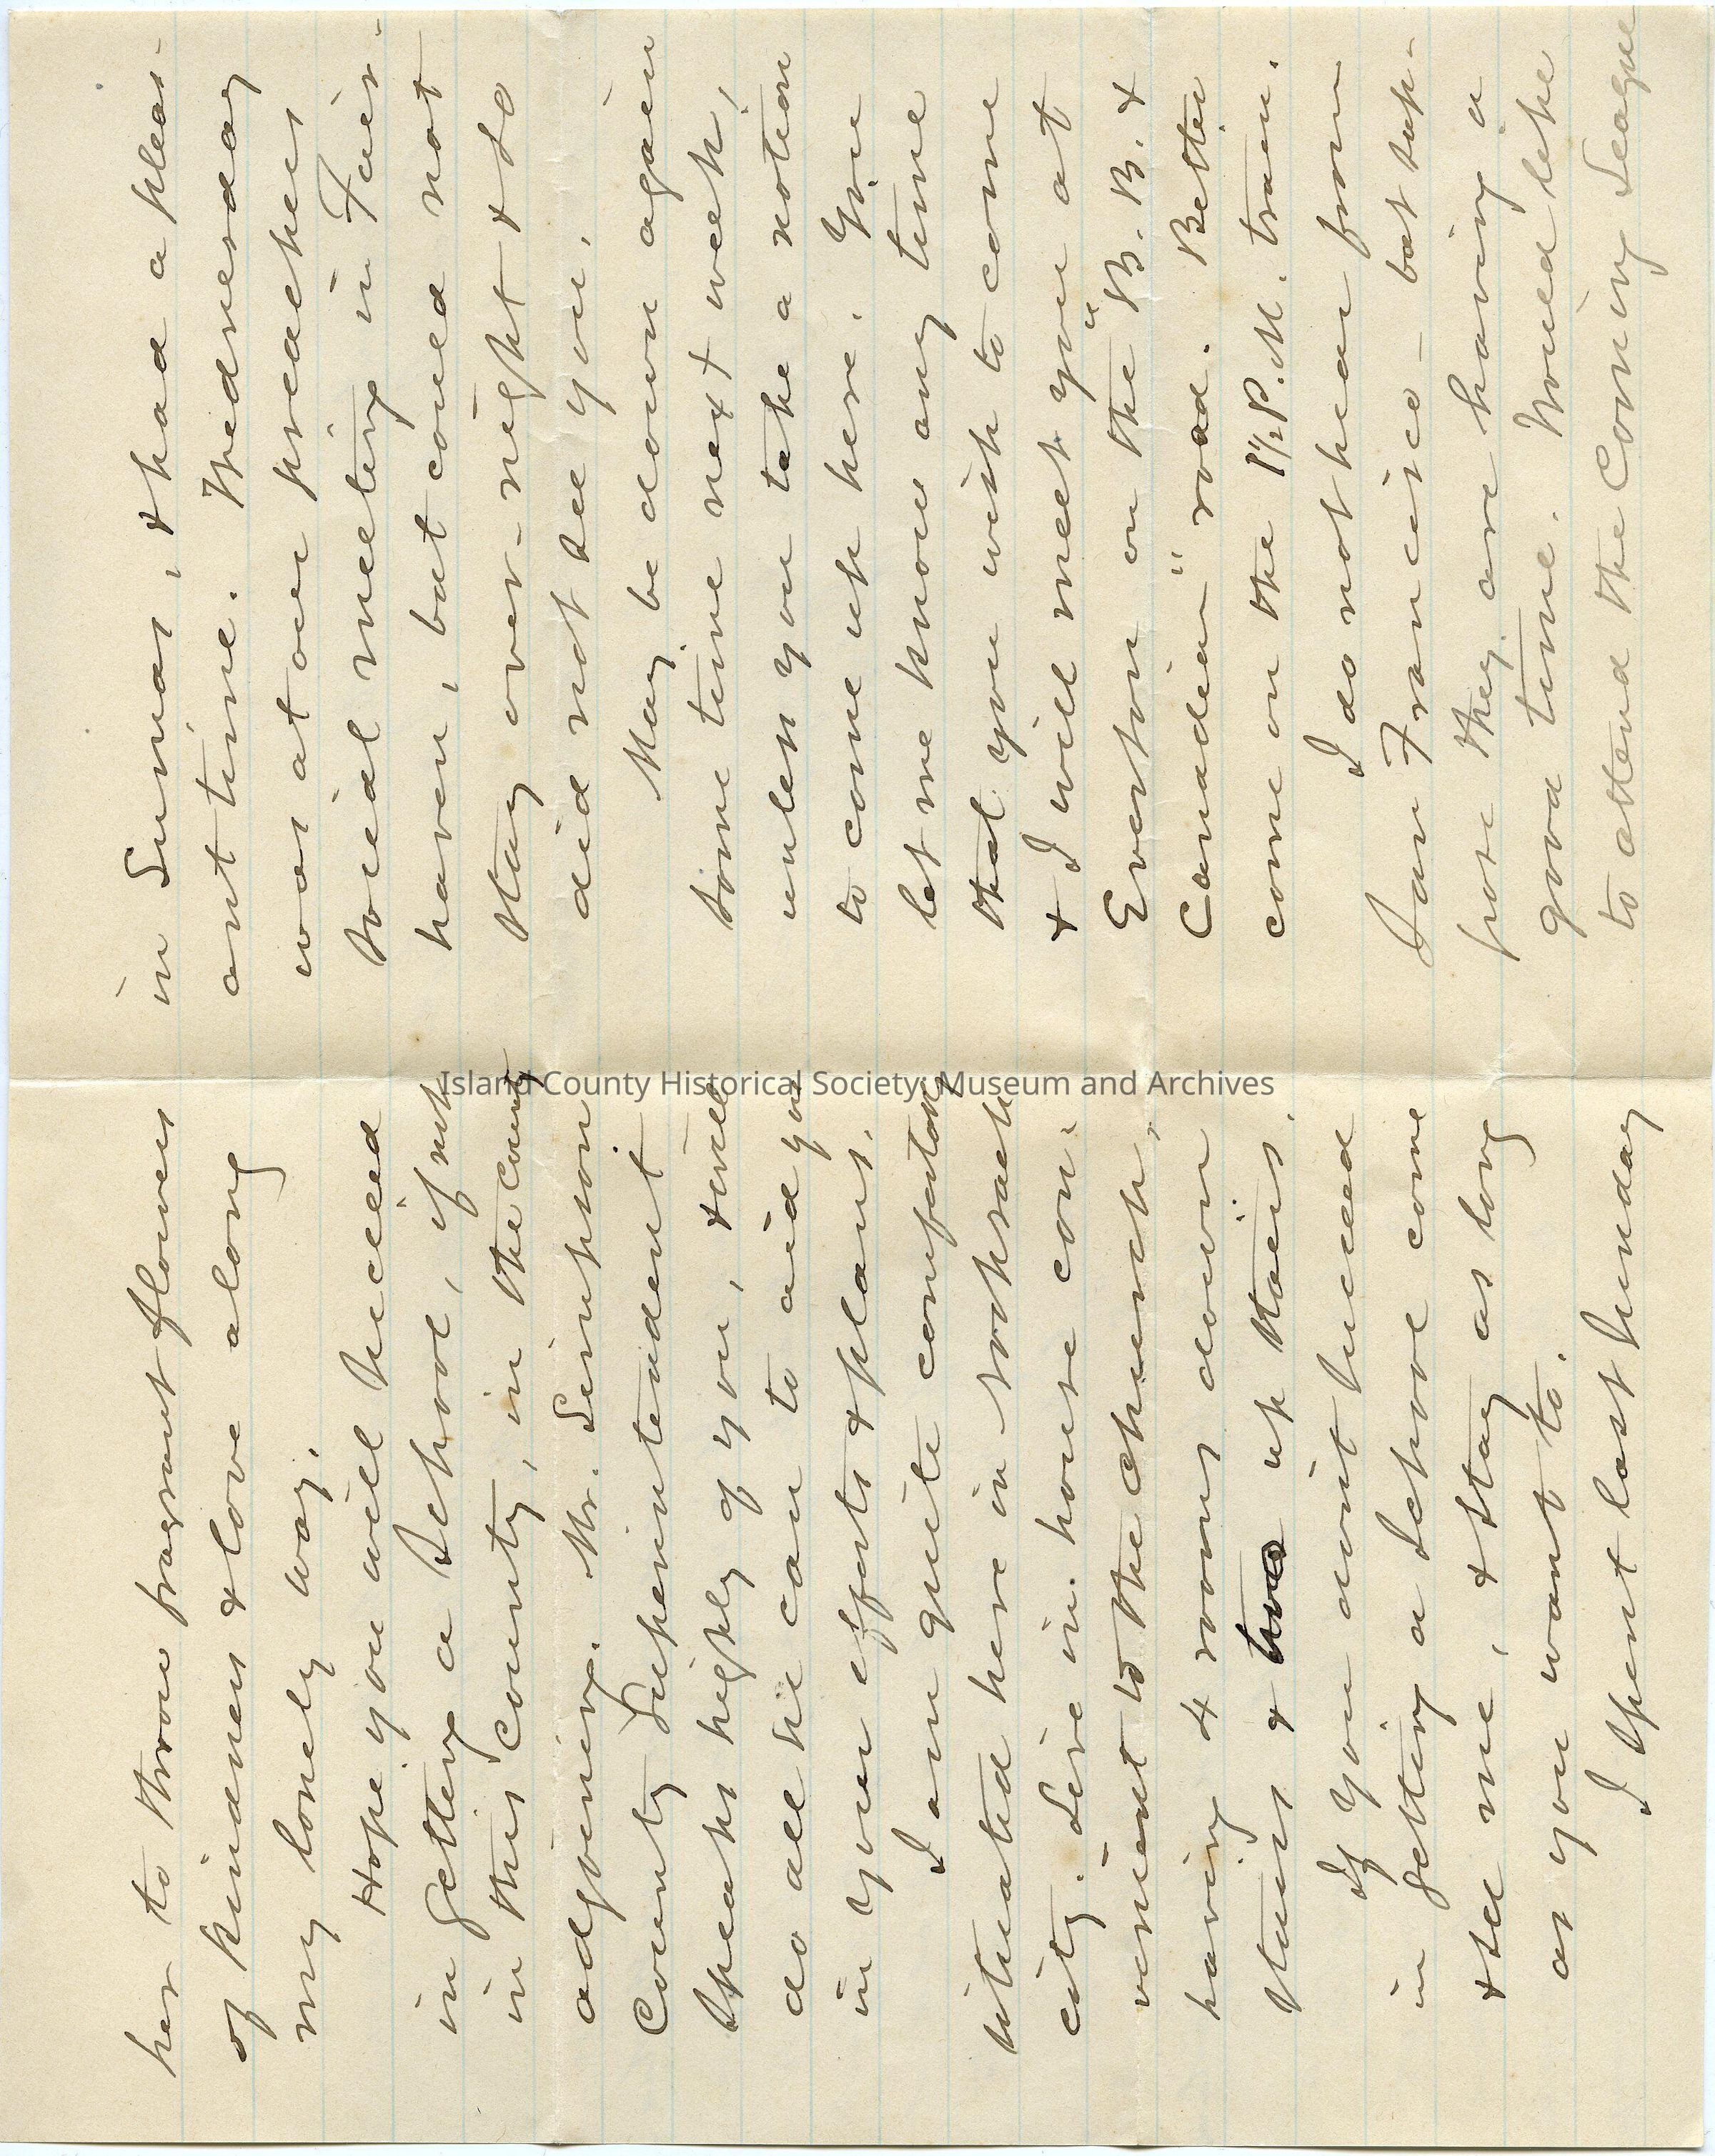 her to throw fragrant flowers
of kindness & love along
my lonely way.
Hope you will succeed
in getting a school, if not
in this County, in the County
adjoining. Mr. Simpson
County Superintendent
speaks highly of you, & will
do all he can to aid you
in your efforts & plans.
I am quite comfortably
situated here in workrach
city. Live in house con-
venient to the church,
having 4 rooms down
stairs & two up stairs.
If you don't succeed
in getting a school come
& see me, & stay as long
as you want to.
I spent last Sunday
in Sumas, & had a pleas-
ant time. Wednesday
was at our preachers
social meeting in Fair-
haven, but could not
stay over-night & so
did not see you.
May be down again
some time next week,
unless you take a notion
to come up here. You
let me know any time
that you wish to come
& I will meet you at
Everson on the "B. B. &
Canadian" road. Better
come on the 1½ P.M. train.
I do not hear from
San Francisco - but sup-
pose they are having a
good time. Would like
to attend the Coming League
Island County Historical Society: Museum and Archives